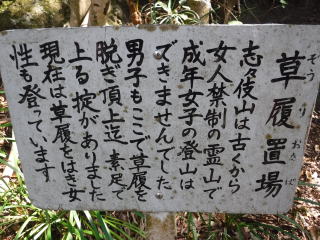 草履置場
ぞうりおきば
志々伎山は古くから
女人禁制の霊山で
成年女子の登山は
できませんでした
男子もここで草履を
脱ぎ頂上迄素足で
上る掟がありました
現在は草履をはき女
性も登っています